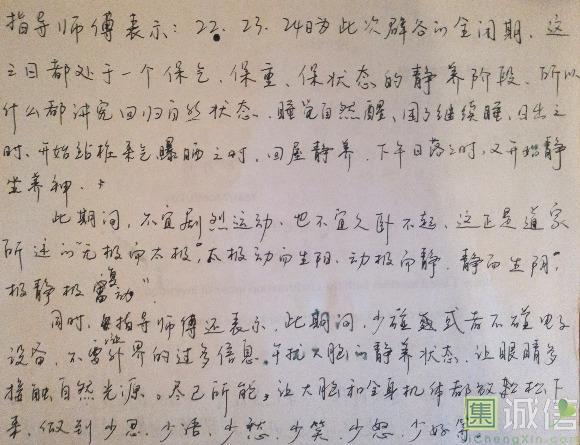 指导师傅表示：22、23、24日为此次辟谷的全闭期，这
三日都处于一个保气、保重、保状态的静养阶段，所以
什么都讲究回归自然状态，睡觉自然醒、困了继续睡，日出之
时、开始站桩采气曝晒之时，回屋静养，下午日落之时，又开始静
坐养神。
此期间，不宜剧烈运动、也不宜久卧不起，这正是道家
所述的“无极而太极”，“太极动而生阳、动极而静，静而生阴”，
极静极复动”。
同时，指导师傅还表示，此期间，少碰或者不碰电子
设备，不让外界的过多信息干扰大脑的静养状态，让眼睛多
接触自然光源。尽己所能，让大脑和全身机体都放松下
来，做到少思、少语、少愁、少笑、少怒、少好
集诚信
jichengxin.com